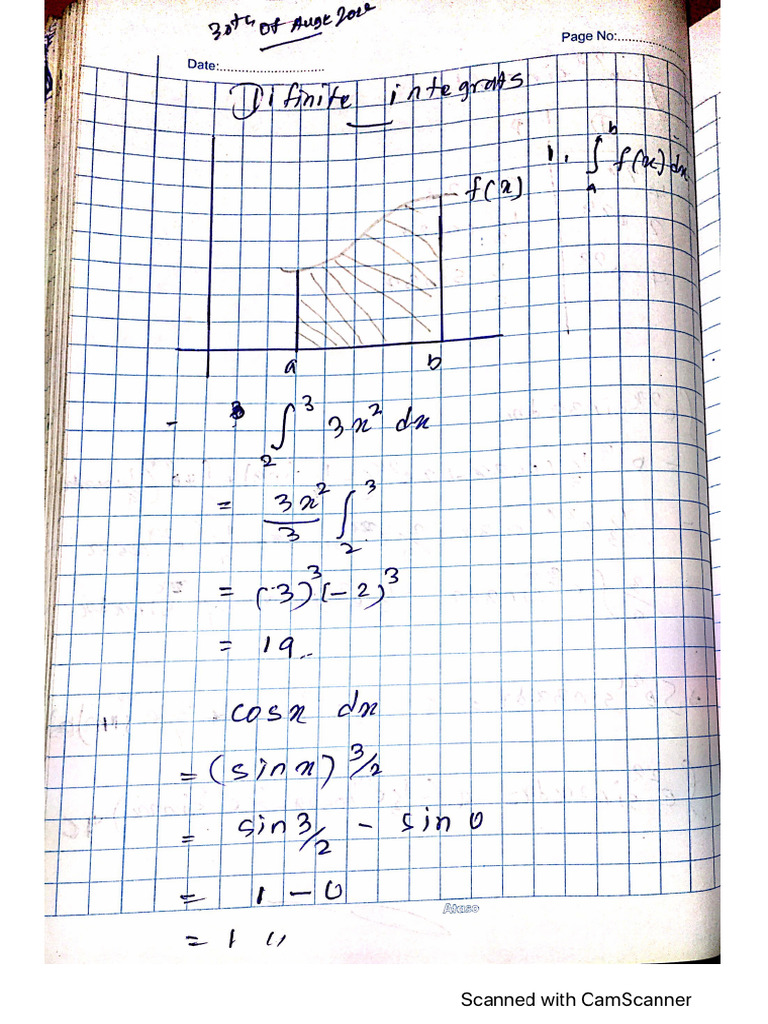 30th of Augt 2022
Page No:
Date:
Difinite integrals
1. ∫_a^b f(x) dx
f(x)
a b
- ∫_2^3 3x^2 dx
= 3x^2/3 ∫_2^3
= (-3)^3 (-2)^3
= 19
cosx dx
= (sinx) 3/2
= sin 3/2 - sin 0
= 1 - 0
Ataso
= 1 "
Scanned with CamScanner